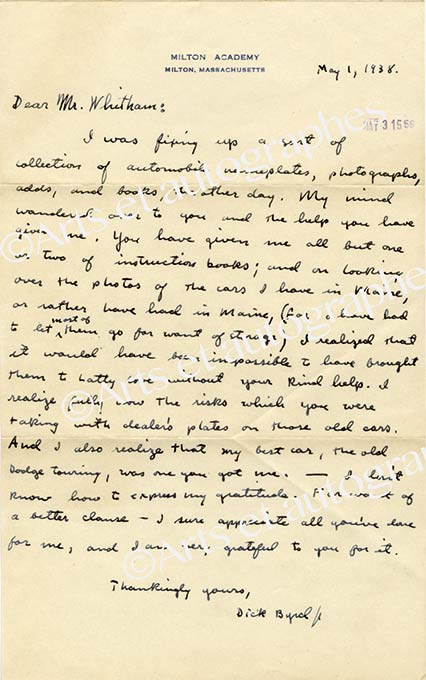 MILTON ACADEMY
MILTON, MASSACHUSETTS
May 1, 1938.
Dear Mr. Whitham:
MAY 3 1556
I was fixing up a sort of
collection of automobile nameplates, photographs,
adds, and books, the other day. My mind
wandered over to you and the help you have
given me. You have given me all but one
or two of instruction books; and on looking
over the photos of the cars I have in Maine,
or rather have had in Maine, (for I have had
to let most of them go for want of storage) I realized that
it would have been impossible to have brought
them to Latty Cove without your kind help. I
realize fully now the risks which you were
taking with dealer's plates on those old cars.
And I also realize that my best car, the old
Dodge touring, was one you got me. — I don't
know how to express my gratitude. For want of
a better clause — I sure appreciate all you've done
for me, and I am very grateful to you for it.
Thankingly yours,
Dick Byrd jr
©Arts et autographes